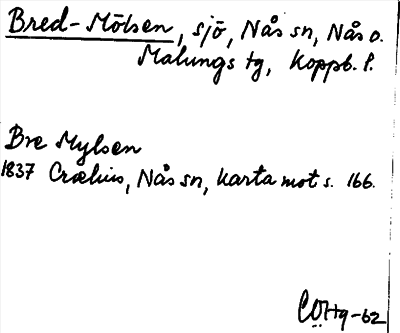 Bred-Mölsen, sjö, Nås sn, Nås o.
Malungs tg, Koppb. l.
Bre Mylsen
1837 Crælius, Nås sn, Karta mot s. 166.
COHg-62